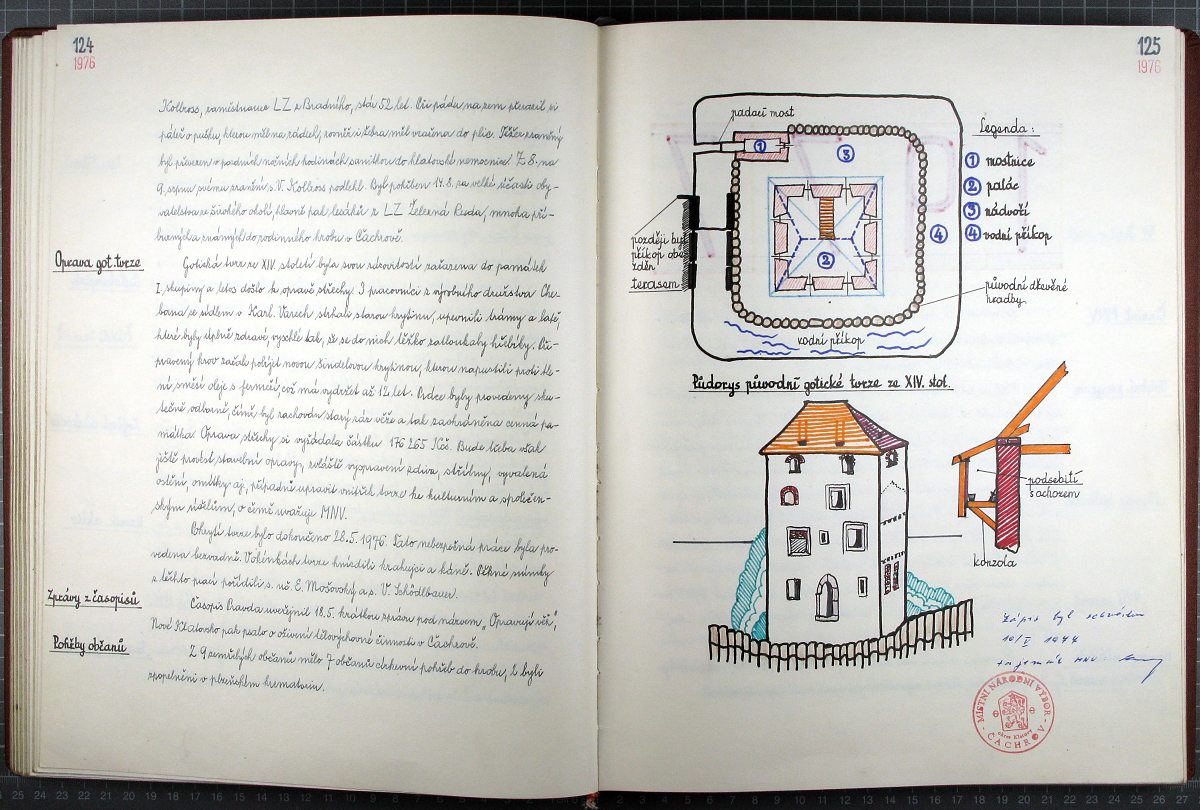 124
1976
Kollross, zaměstnance LZ z Bradného, stár 52 let. Při pádu na zem přerazil si
páteř o pařez, kterou měl na zádech, rovněž i žebra měl vražena do plic. Těžce zraněný
byl převezen v pozdních nočních hodinách sanitkou do klatovské nemocnice 7.8. na
9. srpnu svému zranění s. V. Kollross podlehl. Byl pohřben 14.8. za velké účasti oby-
vatelstva ze širokého okolí, hlavně pak lesáků z LZ Železná Ruda, mnoha pří-
buzných a známých do rodinného hrobu v Čachrově.
Oprava got. tvrze
Gotická tvrz ze XIV. století byla svou zdovitostí zařazena do památek
I. skupiny a letos došlo k opravě střechy. 3 pracovníci z výrobního družstva Che-
bana, se sídlem v Karl. Varech strhali starou krytinu, upevnili trámy a latě,
které byly úplně zdravé, vyschlé tak, že se do nich těžko zatloukaly hřebíky. Při-
pravený krov začali pokrývat novou šindelovou krytinou, kterou napustili proti hni-
ní směsí oleje s fermeží, což má vydržet až 12 let. Práce byly provedeny sku-
tečně odborně, čímž byl zachován starý ráz věže a tak zachráněna cenná pa-
mátka. Oprava střechy si vyžádala částku 176 265 Kčs. Bude třeba však
ještě provést stavební opravy, zvláště vyspravení zdiva, střílny, vyvalená
ostění, omítky aj., případně upravit vnitřek tvrze ke kulturním a společen-
ským účelům, o čemž uvažuje MNV.
Pokrytí tvrze bylo dokončeno 28.5.1976. Tato nebezpečná práce byla pro-
vedena bezvadně. V okénkách tvrze hnízdili krahujci a káně. Pěkné snímky
z těchto prací pořídili s. uč. E. Mošovský a s. V. Schödlbauer.
Zprávy z časopisů
Časopis Pravda uveřejnil 18.5. krátkou zprávu pod názvem „Opravují věž",
Nové Klatovsko pak psalo o oživení tělovýchovné činnosti v Čachrově.
Pohřby občanů
Z 9 zemřelých občanů mělo 7 občanů církevní pohřeb do hrobu, 2 byli
zpopelněni v plzeňském krematoriu.
125
1976
padací most
Legenda:
1 mostnice
2 palác
3 nádvoří
4 vodní příkop
1
3
2
4
později byl
příkop obe-
zděn
terasem
původní dřevěné
hradby
vodní příkop
Půdorys původní gotické tvrze ze XIV. stol.
podsebití
s ochozem
konzola
Zápis byl schválen
10/I 1977
tajemník MNV
MÍSTNÍ NÁRODNÍ VÝBOR
okres Klatovy
ČACHROV